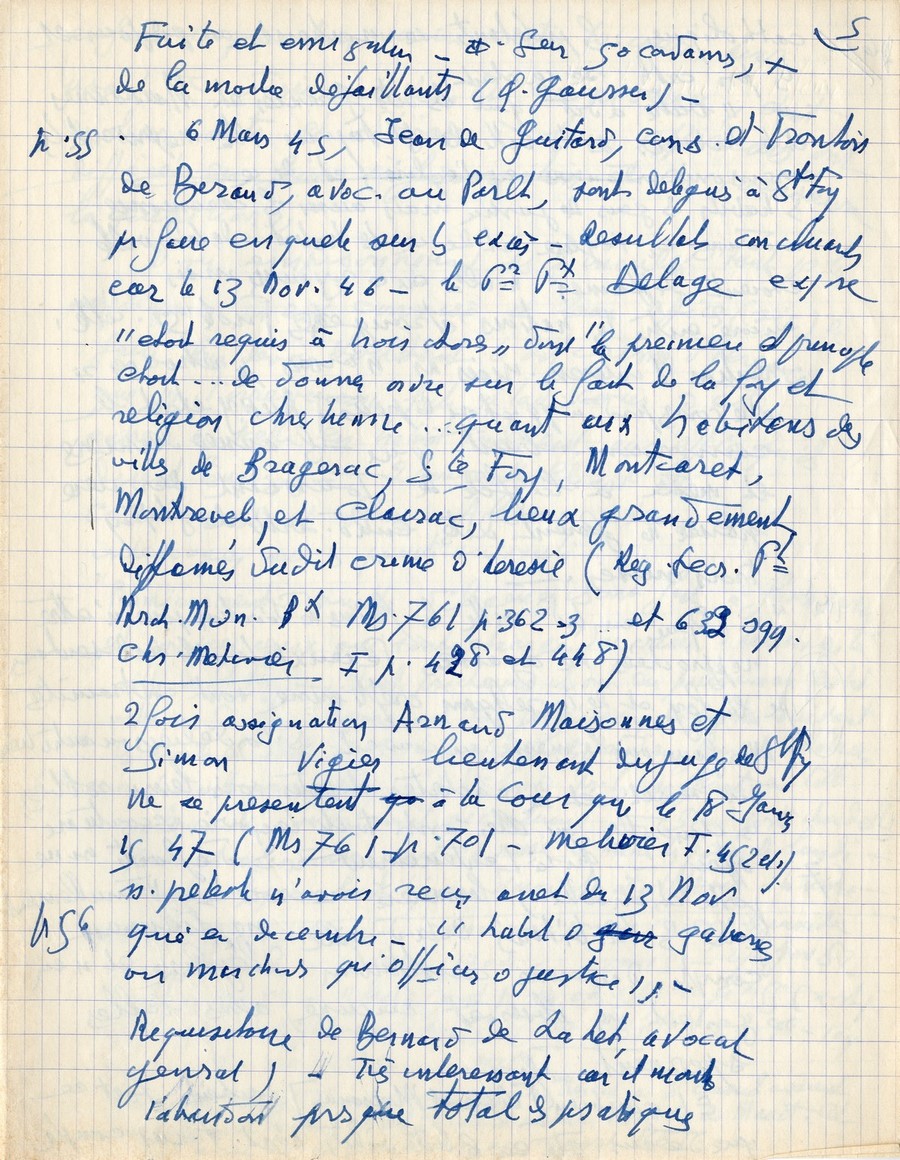 5
Fuite et emigration _ Sur 50 condams, +
de la moitie défaillants (P. Gaussen) _
p. 55 . 6 Mars 45, Jean de Guitard, cons. et Frontois
de Beraud, avoc. au Parlt, sont delegués à Ste Foy
pr faire enquete sur ls excès _ Resultats concluants
car le 13 Nov. 46 _ le Pr Px Delage expose
"etoit requis à trois choses, dont "la premiere et principle
etoit ... de donner ordre sur le fait de la foy et
religion chrestienne ... quant aux habitans des
villes de Bragerac, Ste Foy, Montcaret,
Montrevel, et Clairac, lieux grandement
diffamés dudit crime d'heresie (Reg. secr. Pt
Arch. Mun. Bx Ms. 761 p. 362-3 .. et 699.
Chs. Metivier I p. 428 et 448)
2 fois assignation Arnaud Maisonnes et
Simon Vigier lieutenant du juge de Ste Foy
ne se presentent à la Cour que le 18 Janv
1547 (Ms 761 p. 701 _ Metivier I. 452
n'avoir reçu arret du 13 Nov
p 56 qu'en decembre _ habit
ou marchds qu'officiers justice _
Requisitoire de Bernard de Lahet, avocat
general) _ Très interessant car il montre
l'abandon presque total ds pratiques